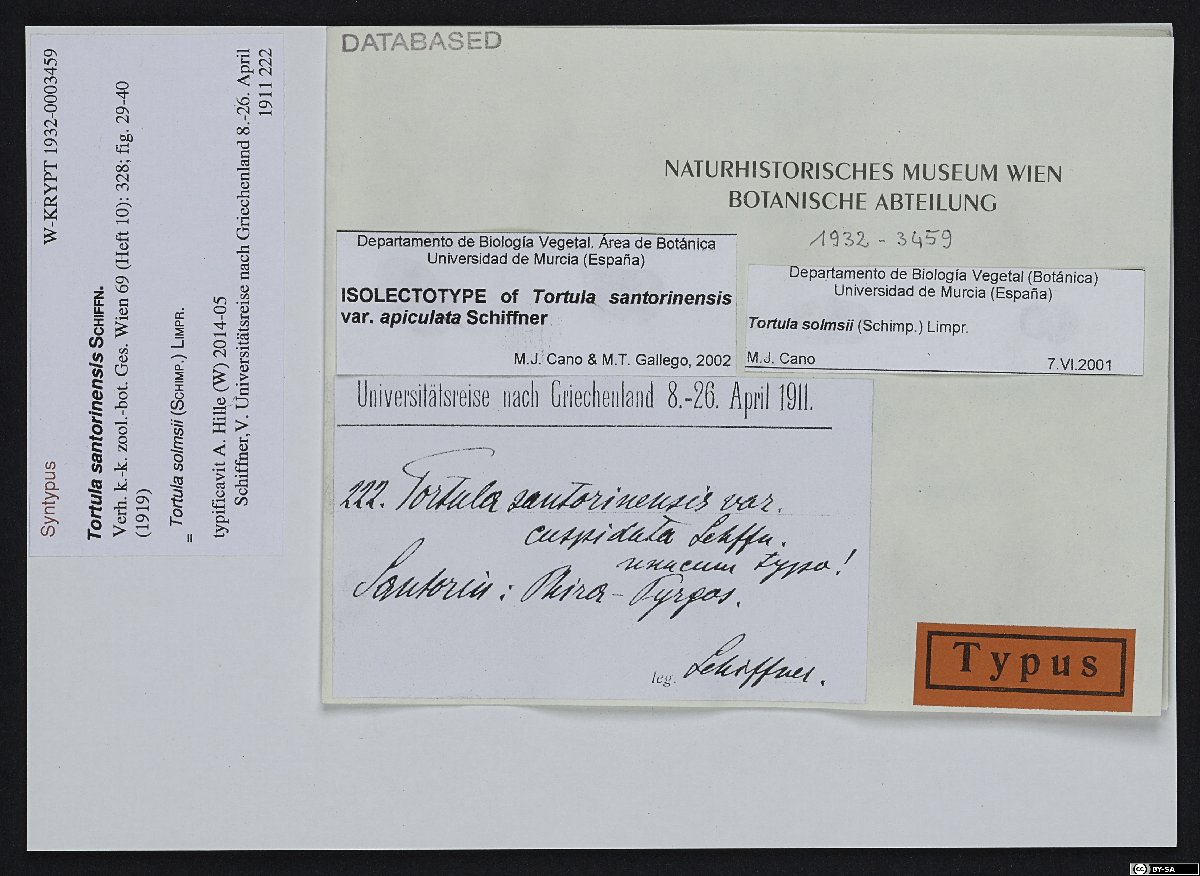 W-KRYPT 1932-0003459
Syntypus
Tortula santorinensis SCHIFFN.
Verh. k.-k. zool.-bot. Ges. Wien 69 (Heft 10): 328; fig. 29-40
(1919)
= Tortula solmsii (SCHIMP.) LIMPR.
typificavit A. Hille (W) 2014-05
Schiffner,V. Universitätsreise nach Griechenland 8.-26. April
1911 222
DATABASED
NATURHISTORISCHES MUSEUM WIEN
BOTANISCHE ABTEILUNG
1932 - 3459
Departamento de Biología Vegetal. Área de Botánica
Universidad de Murcia (España)
ISOLECTOTYPE of Tortula santorinensis
var. apiculata Schiffner
M.J. Cano & M.T. Gallego, 2002
Departamento de Biología Vegetal (Botánica)
Universidad de Murcia (España)
Tortula solmsii (Schimp.) Limpr.
M.J. Cano 7.VI.2001
Universitätsreise nach Griechenland 8.-26. April 1911.
222. Tortula santorinensis var.
cuspidata Schffn.
unacum typo!
Santorin: Thira-Pyrgos.
leg. Schiffner.
Typus
cc BY-SA